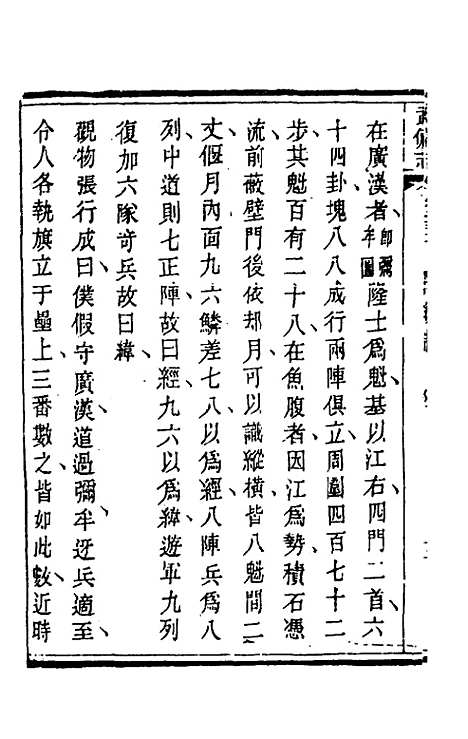 武備志
在廣漢者即彌牟圖隆士爲魁基以江右四門二首六
十四卦塊八八成行兩陣俱立周圍四百七十二
步其魁百有二十八在魚腹者因江爲勢積石憑
流前蔽壁門後依却月可以識縱橫皆八魁間二
丈偃月內面九六鱗差七八以爲經八陣兵爲八
列中道則七正陣故曰經九六以爲緯遊軍九列
復加六隊奇兵故曰緯
觀物張行成曰僕假守廣漢道過彌牟迓兵適至
令人各執旗立于壘上三番數之皆如此數近時